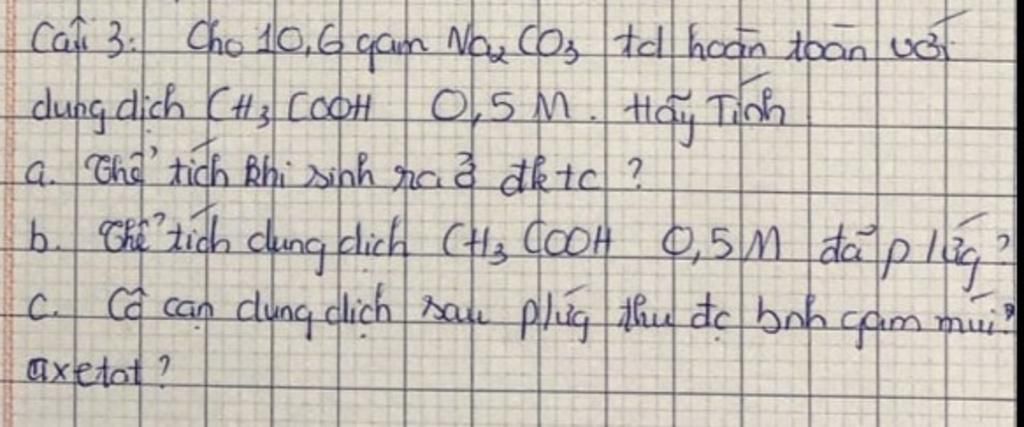 Câu 3: Cho 10,6 gam Na2CO3 td hoàn toàn với
dung dịch CH3COOH 0,5M. Hãy Tính
a. Thể tích khí sinh ra ở đktc?
b. Thể tích dung dịch CH3COOH 0,5M đã p/ứng?
c. Cô cạn dung dịch sau p/ứg thu đc bnh gam muối
axetat?